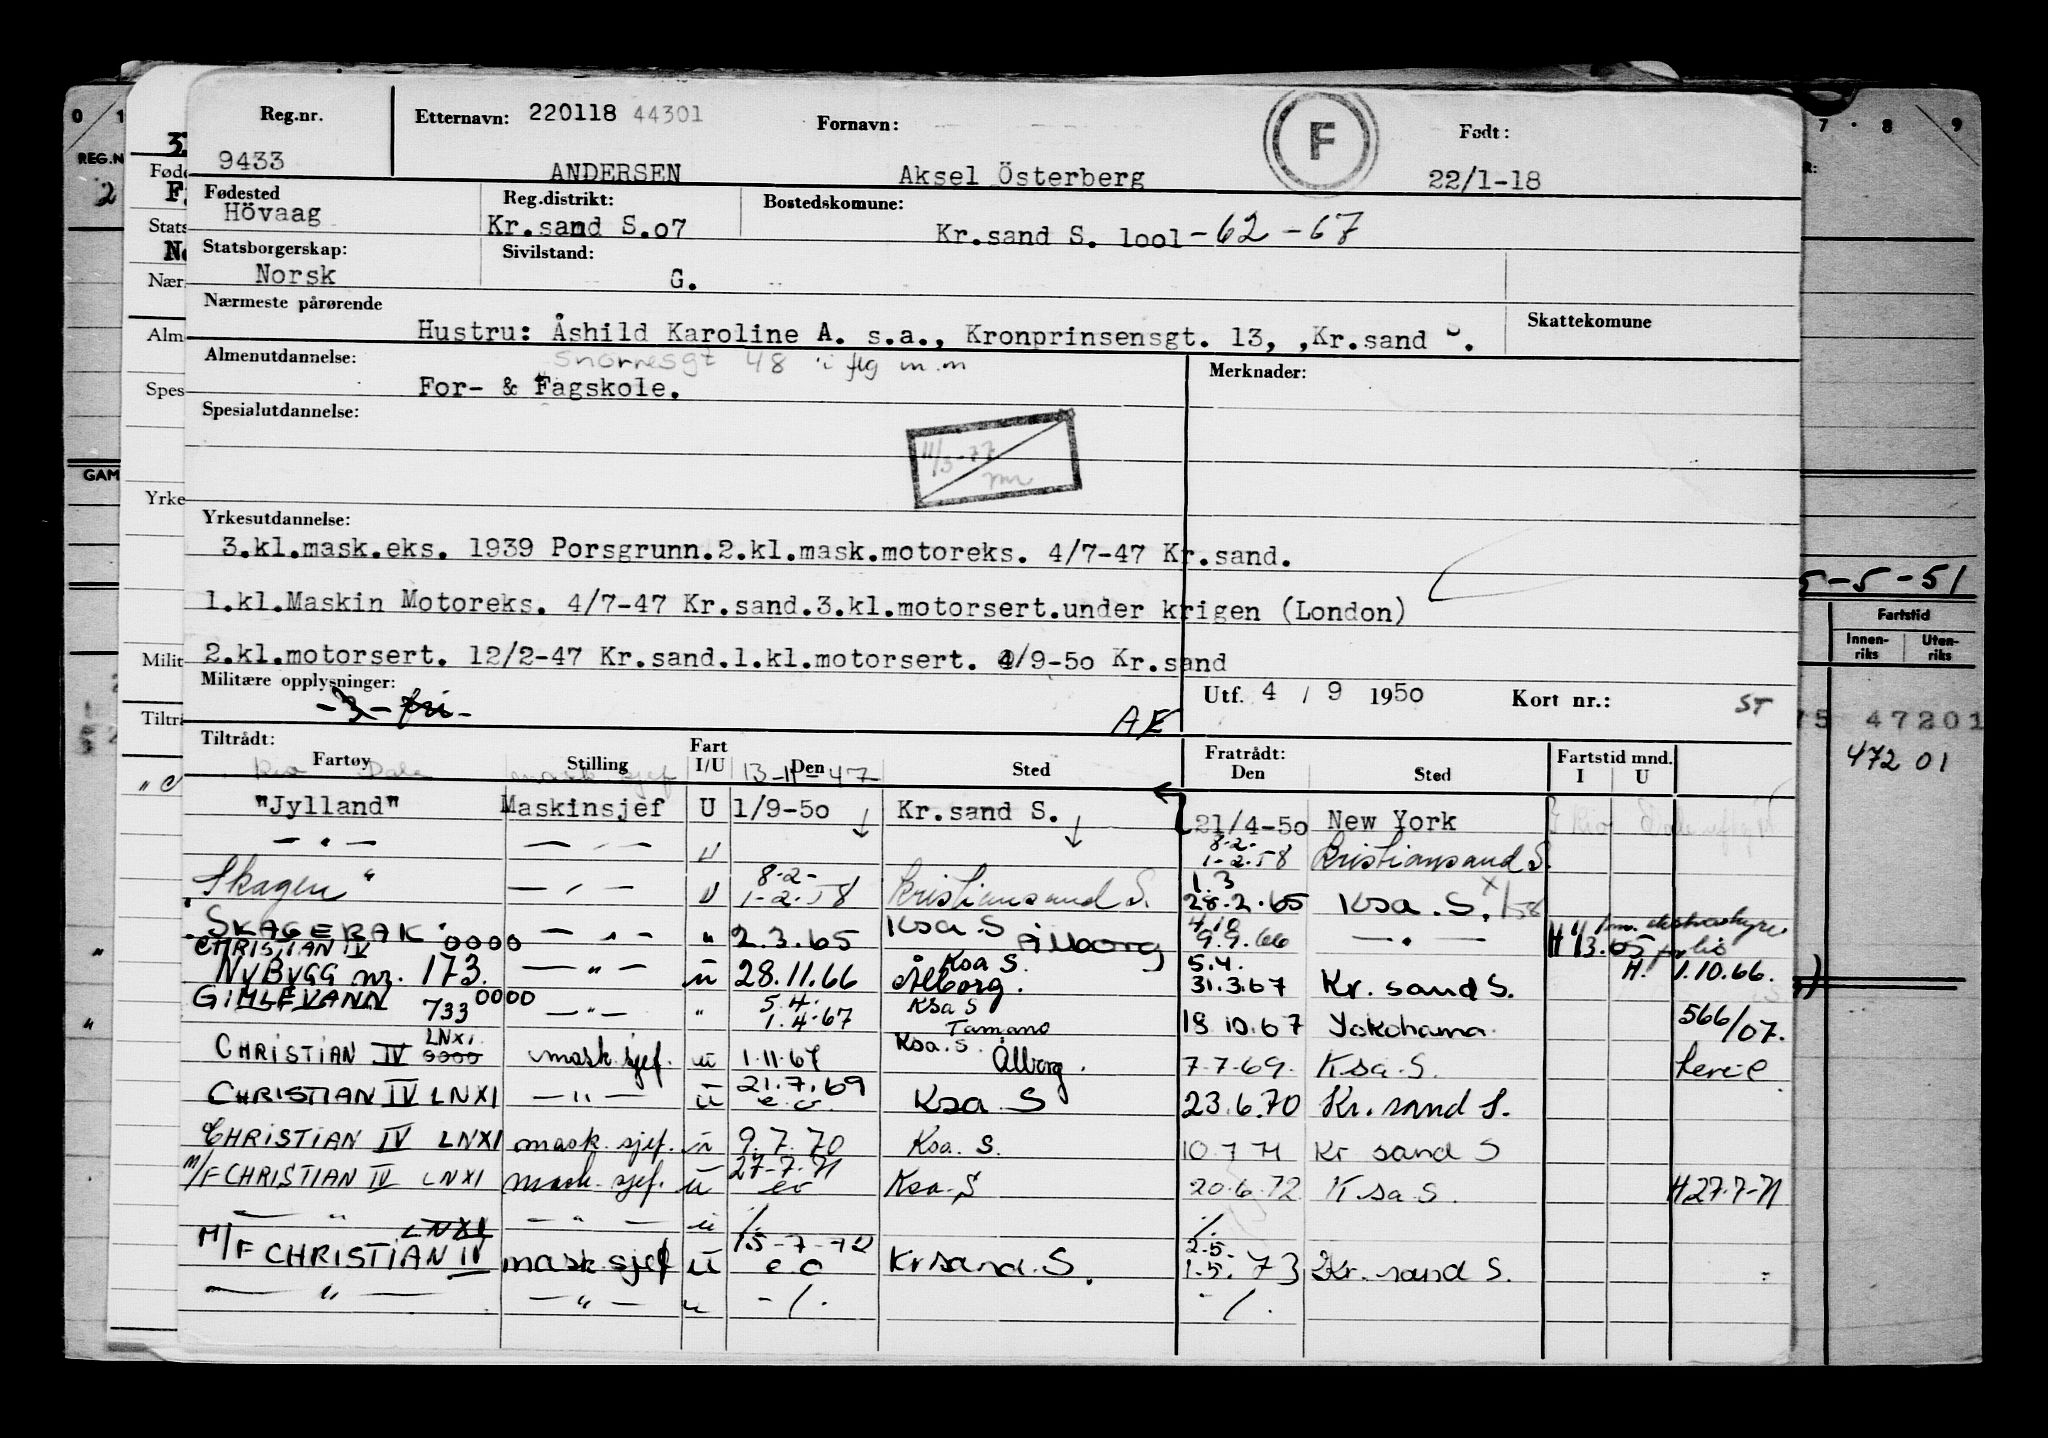 Reg.nr. Etternavn: 220118 44301 Fornavn: F Født:
9433 ANDERSEN Aksel Österberg 22/1-18
Fødested Reg.distrikt: Bostedskomune:
Hövaag Kr.sand S.o7 Kr.sand S. lool -62-67
Statsborgerskap: Sivilstand:
Norsk G.
Nærmeste pårørende Skattekomune
Hustru: Åshild Karoline A. s.a., Kronprinsensgt. 13, ,Kr.sand .
Almenutdannelse: Snorresgt 48 Merknader:
For- & Fagskole.
Spesialutdannelse:
11/3-77
Yrkesutdannelse:
3.kl.mask.eks. 1939 Porsgrunn.2.kl.mask.motoreks. 4/7-47 Kr.sand.
1.kl.Maskin Motoreks. 4/7-47 Kr.sand.3.kl.motorsert.under krigen (London)
2.kl.motorsert. 12/2-47 Kr.sand.1.kl.motorsert. 4/9-5o Kr.sand
Militære opplysninger: Utf. 4 / 9 1950 Kort nr.: ST
-3- fri- AE
Tiltrådt: Fratrådt:
Fartøy Stilling Fart I/U Den Sted Den Sted Fartstid mnd. I U
mask sjef 13-11-47
"Jylland" Maskinsjef U 1/9-5o Kr.sand S. 21/4-5o New York
— " — — " — U 8-2- 1-2-58 Kristiansand S.
Skagen" — " — U 8-2- 1-2-58 Kristiansand S. 1.3 28.2.65 Ksa. S. x/58
SKAGERAK — " — " 2.3.65 Ksa S Ålborg 9.9.66 — " —
CHRISTIAN IV 0000
NYBYGG nr. 173. — " — u 28.11.66 Ksa S. Ålborg. 5.4. 31.3.67 Kr. sand S. H. 1.10.66.
GIMLEVANN 733 0000 — " — " 5.4. 1.4.67 Ksa S Tamano 18 10.67 Yokohama 566/07.
CHRISTIAN IV LNXI 0000 mask. sjef. u 1.11.67 Ksa. S. Ålborg. 7-7-69. Ksa. S.
CHRISTIAN IV LNXI — " — u 21.7.69 e.o. Ksa S 23.6.70 Kr. sand S.
CHRISTIAN IV LNXI mask. sjef. u 9.7.70 Ksa. S. 10.7 71 Kr sand S
M/F CHRISTIAN IV LNXI mask. sjef. u 27-7-71 eo Ksa. S 20.6.72 Ksa S. H 27.7-71
— " — — " — u ⁒ ⁒
M/F CHRISTIAN IV LNXI mask sjef u 15-7-72 e o Kr sand. S. 2.5. 1.5. 73 Kr. sand S.
— " — — " — u -/. -/.
0 1 7 8 9
REG.N
2
Føde
Stats
Nær
Alm
Spes
GAM
Yrke
Milit
Tiltrå
5-5-51
Fartstid
Innenriks Utenriks
75 47201
472 01